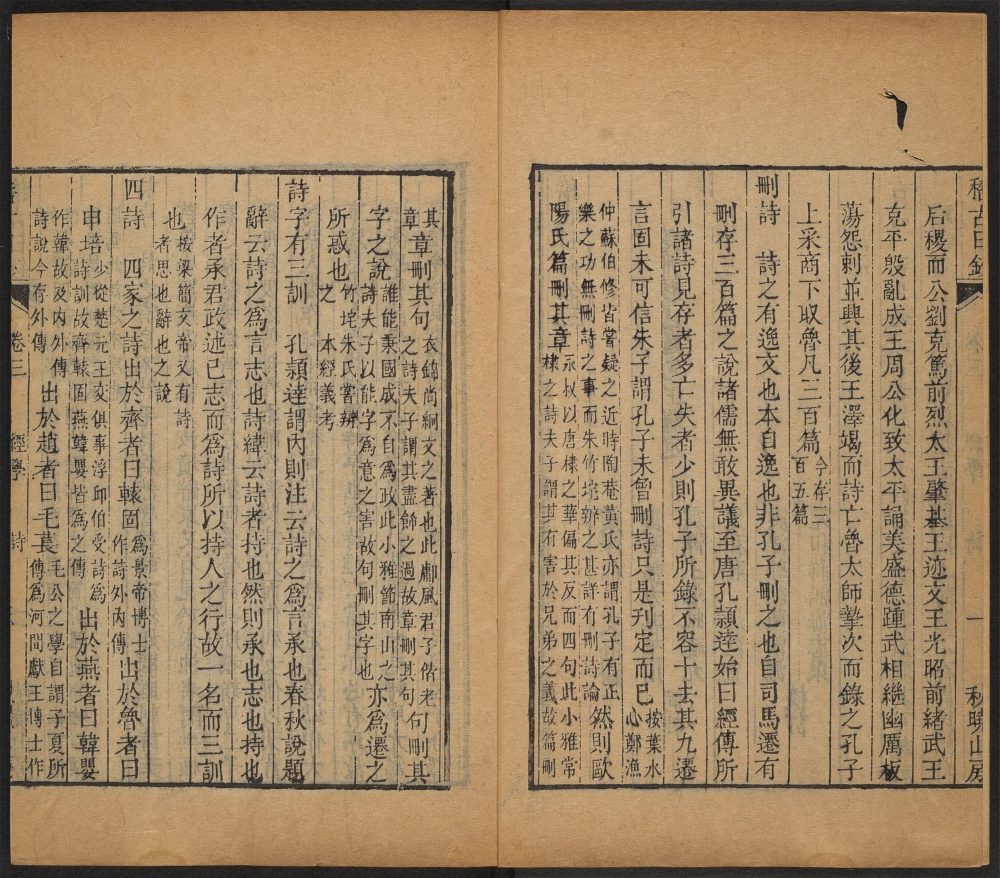 稽古日鈔 一 秋曉山房
后稷而公劉克篤前烈太王肇基王迹文王光昭前緒武王
克平殷亂成王周公化致太平誦美盛德踵武相繼幽厲板
蕩怨刺並興其後王澤竭而詩亡魯太師摯次而錄之孔子
上采商下取魯凡三百篇今存三百五篇
刪詩 詩之有逸文也本自逸也非孔子刪之也自司馬遷有
刪存三百篇之說諸儒無敢異議至唐孔穎達始曰經傳所
引諸詩見存者多亡失者少則孔子所錄不容十去其九遷
言固未可信朱子謂孔子未曾刪詩只是刋定而已按葉水心鄭漁
仲蘇伯修皆嘗疑之近時陶菴黃氏亦謂孔子有正樂之功無刪詩之事而朱竹垞辨之甚詳有刪詩論然則歐
陽氏篇刪其章永叔以唐棣之華偏其反而四句此小雅常棣之詩夫子謂其有害於兄弟之義故篇刪
其章章刪其句衣錦尚絅文之著也此鄘風君子偕老之詩夫子謂其盡飾之過故章刪其句句刪其
字之說誰能秉國成不自爲政此小雅節南山之詩夫子以能字爲意之害故句刪其字也亦爲遷之
所惑也竹垞朱氏嘗辨之 本經義考
詩字有三訓 孔穎達謂內則注云詩之爲言承也春秋說題
辭云詩之爲言志也詩緯云詩者持也然則承也志也持也
作者承君政述己志而爲詩所以持人之行故一名而三訓
也按梁簡文帝又有詩者思也辭也之說
四詩 四家之詩出於齊者曰轅固爲景帝博士作詩外內傳出於魯者曰
申培少從楚元王交俱事浮邱伯受詩爲詩訓故齊轅固燕韓嬰皆爲之傳出於燕者曰韓嬰
作韓故及內外傳詩說今存外傳出於趙者曰毛萇毛公之學自謂子夏所傳爲河間獻王博士作
卷三 經學 詩